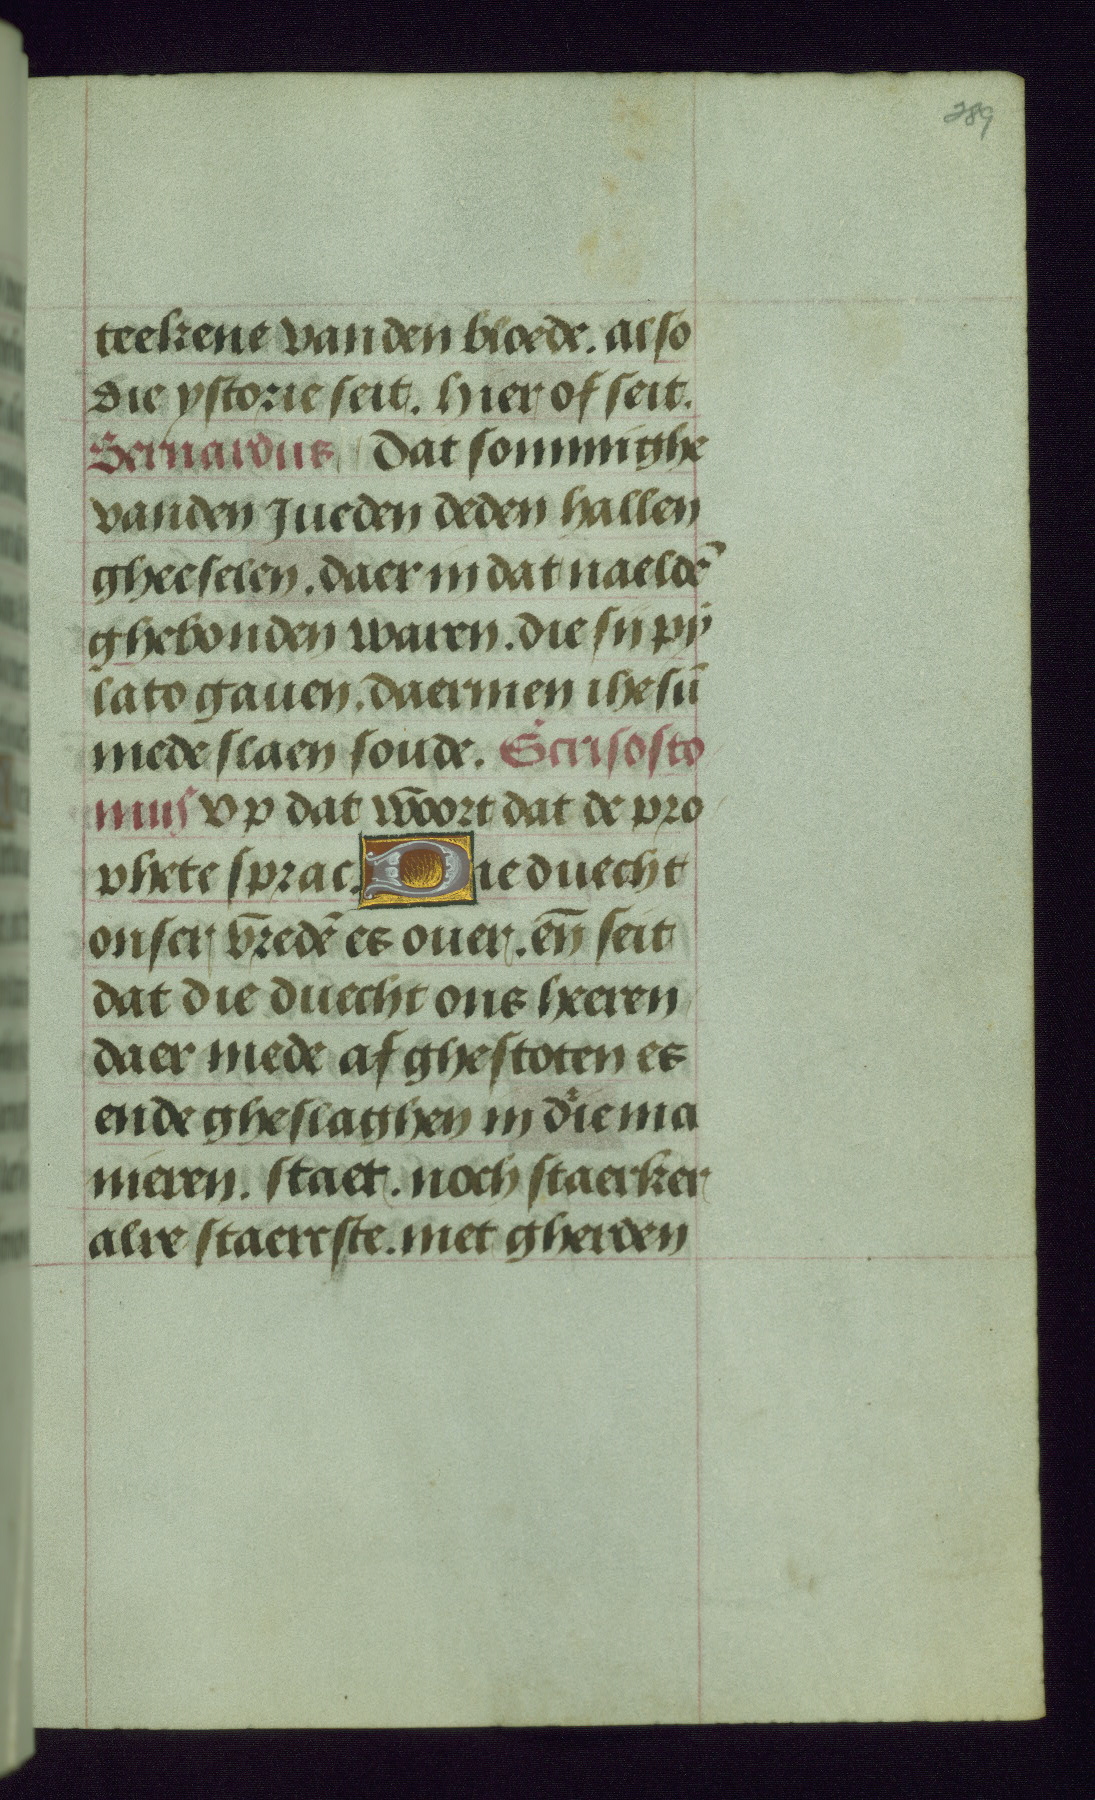 289
teekene vanden bloede. also
die ystorie seit. hier of seit.
Bernardus Dat sommighe
vanden Jueden deden hallen
gheeselen. daer in dat naeldē
ghebonden waren. die sij py
lato gauen. daermen ihesū
mede slaen soude. Scrisosto
mus vp dat woort dat de pro
phete sprac. Die duecht
onser vredē es ouer. eñ seit
dat die duecht ons heeren
daer mede af ghestoten es
ende gheslaghen in drie ma
nieren. staet. noch staerker
alre staercste. met gherden